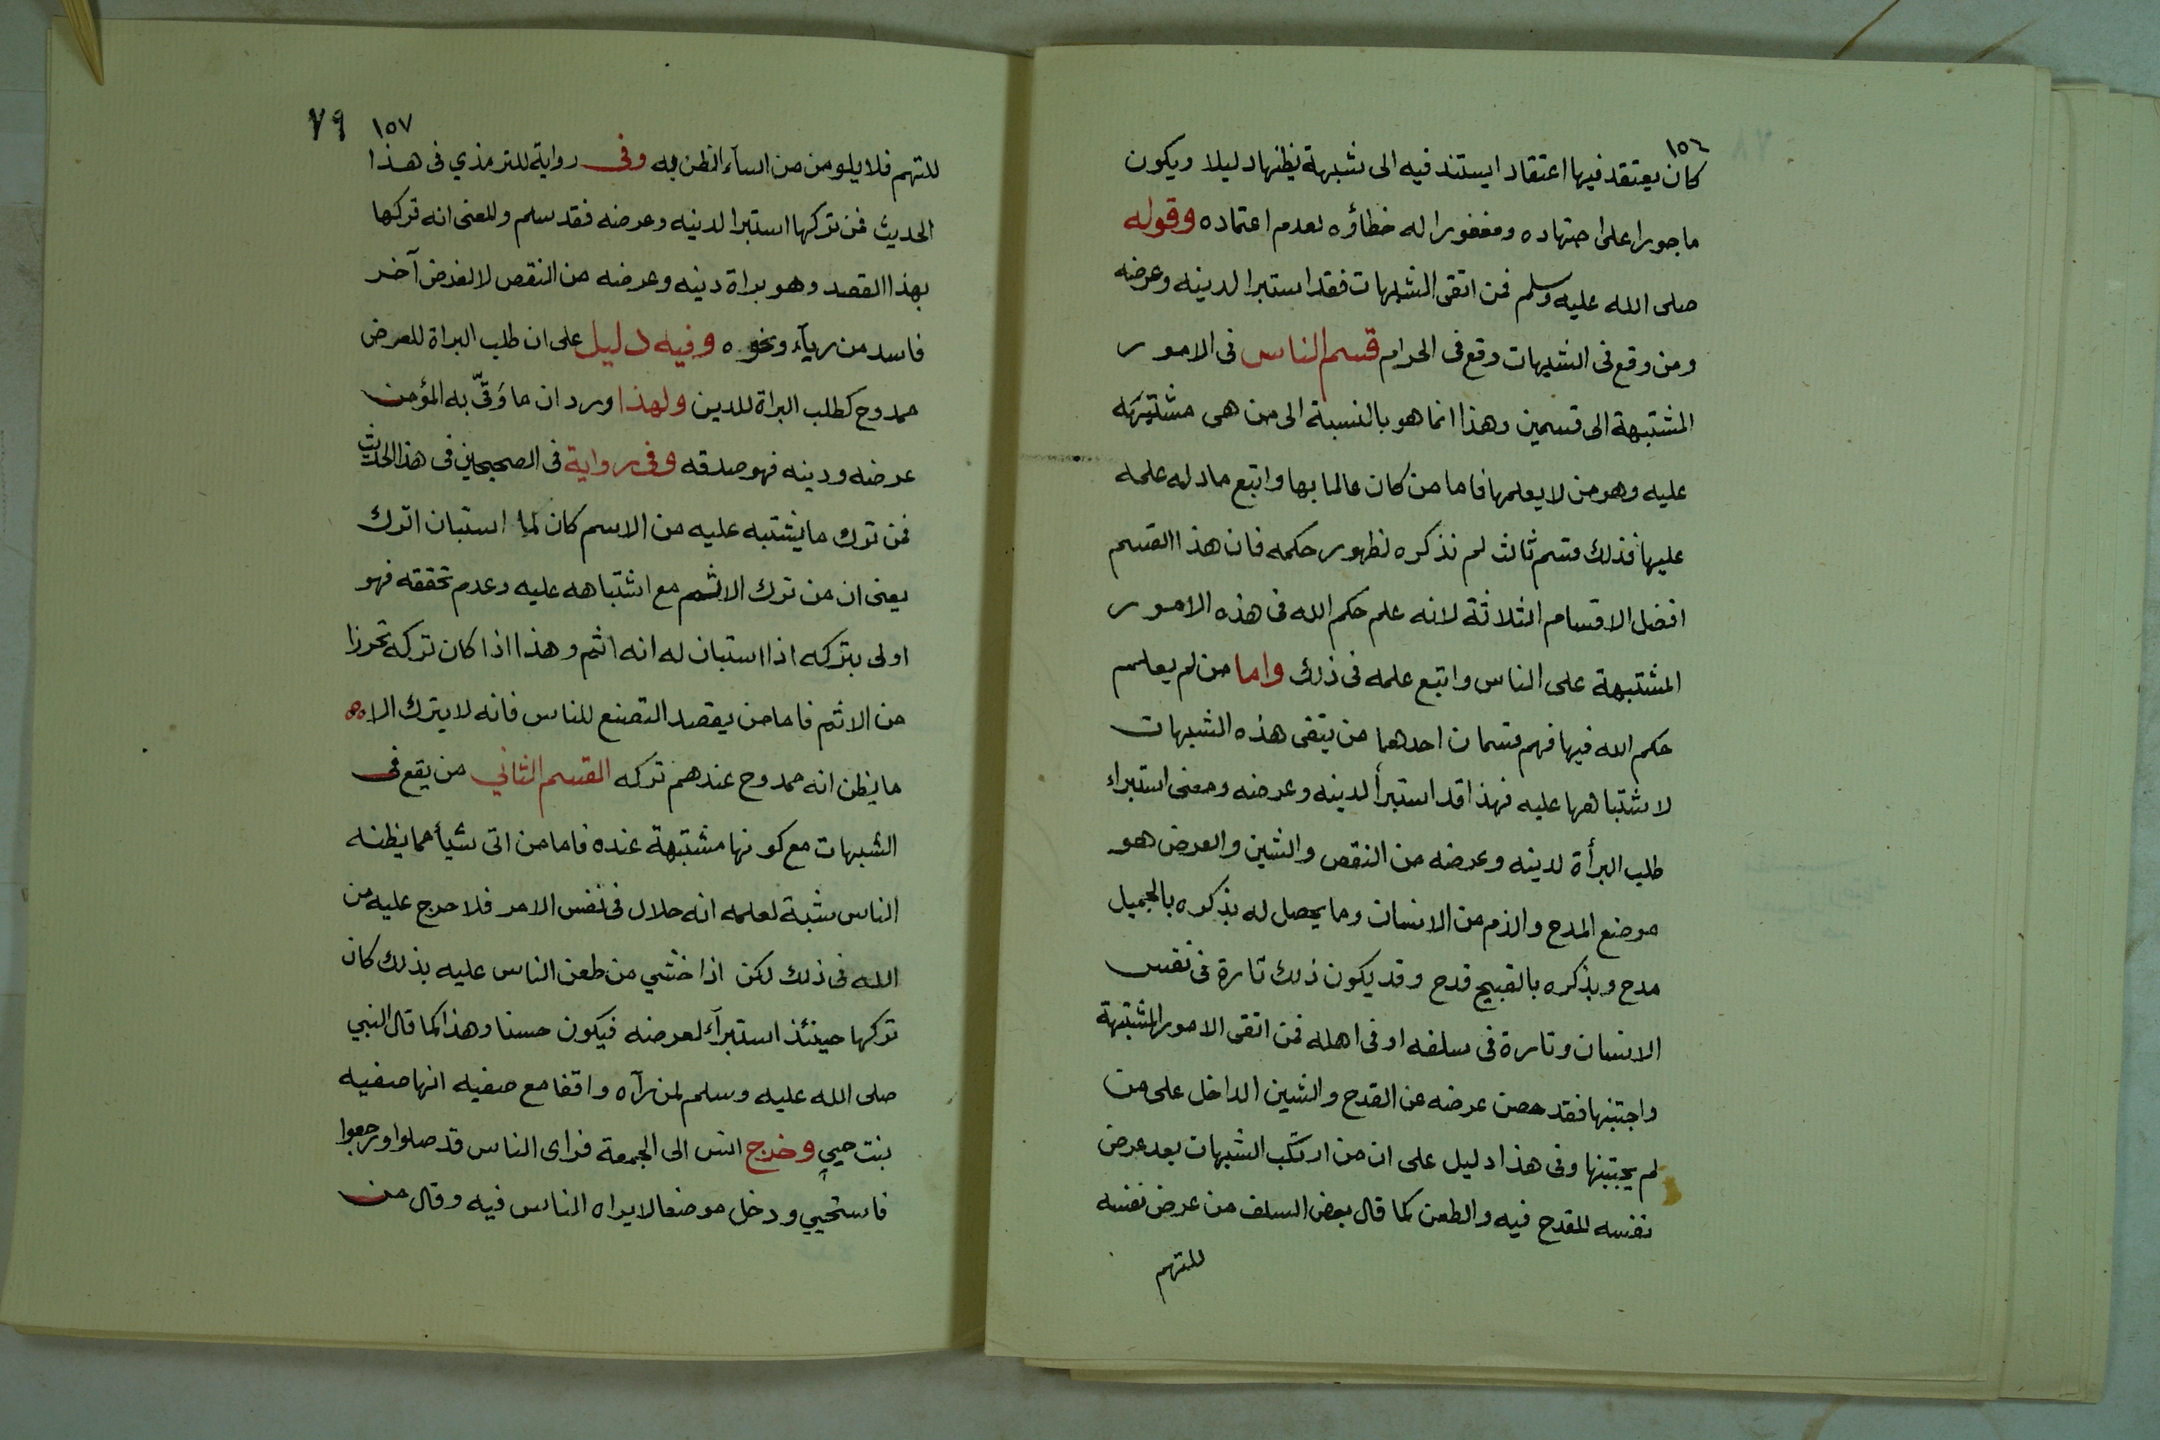 ١٥٦
كان يعتقد فيها اعتقادا يستند فيه الى شبهة يظنها دليلا ويكون
ماجورا على اجتهاده ومغفورا له خطاؤه لعدم اعتماده وقوله
صلى الله عليه وسلم فمن اتقى الشبهات فقد استبرا لدينه وعرضه
ومن وقع فى الشبهات وقع فى الحرام قسم الناس فى الامور
المشتبهة الى قسمين وهذا انما هو بالنسبة الى من هى مشتبهه
عليه وهو من لا يعلمها فاما من كان عالما بها واتبع ما دله علمه
عليها فذلك قسم ثالث لم نذكره لظهور حكمه فان هذا القسم
افضل الاقسام الثلاثة لانه علم حكم الله فى هذه الامور
المشتبهة على الناس واتبع علمه فى ذلك واما من لم يعلم
حكم الله فيها فهم قسمان احدهما من يتقى هذه الشبهات
لاشتباهها عليه فهذا قد استبرأ لدينه وعرضه ومعنى استبراء
طلب البرأة لدينه وعرضه من النقص والشين والعرض هو
موضع المدح والذم من الانسان وما يحصل له بذكره بالجميل
مدح وبذكره بالقبيح قدح وقد يكون ذلك تارة فى نفس
الانسان وتارة فى سلفه او فى اهله فمن اتقى الامور المشتبهة
واجتنبها فقد حصن عرضه عن القدح والشين الداخل على من
لم يجتبنها وفى هذا دليل على ان من ارتكب الشبهات بعد عرض
نفسه للقدح فيه والطعن كما قال بعض السلف من عرض نفسه
للتهم
١٥٧ ٧٩
للتهم فلا يلومن من اسآء الظن به وفى رواية للترمذي فى هذا
الحديث فمن تركها استبرا لدينه وعرضه فقد سلم والمعنى انه تركها
بهذا القصد وهو براة دينه وعرضه من النقص لا لغرض آخر
فاسد من ريآء ونحوه وفيه دليل على ان طلب البراة للعرض
ممدوح كطلب البراة للدين ولهذا ورد ان ما وَقىّ به المؤمن
عرضه ودينه فهو صدقه وفى رواية فى الصحيحين فى هذا الحديث
فمن ترك ما يشتبه عليه من الاسم كان لما استبان اترك
يعنى ان من ترك الاثم مع اشتباهه عليه وعدم تحققه فهو
اولى بتركه اذا استبان له انه اثم وهذا اذا كان تركه تحرزا
من الاثم فاما من يقصد التصنع للناس فانه لا يترك الا
ما يظن انه ممدوح عندهم تركه القسم الثاني من يقع فى
الشبهات مع كونها مشتبهة عنده فاما من اتى شيأ مما يظنه
الناس شبة لعلمه انه حلال فى نفس الامر فلا حرج عليه من
الله فى ذلك لكن اذا خشي من طعن الناس عليه بذلك كان
تركها حينئذ استبرآء لعرضه فيكون حسنا وهذا كما قال النبي
صلى الله عليه وسلم لمن رآه واقفا مع صفيه انها صفيه
بنت حيي وخرج انس الى الجمعة فراى الناس قد صلوا ورجعوا
فاستحيي ودخل موضعا لا يراه الناس فيه وقال من